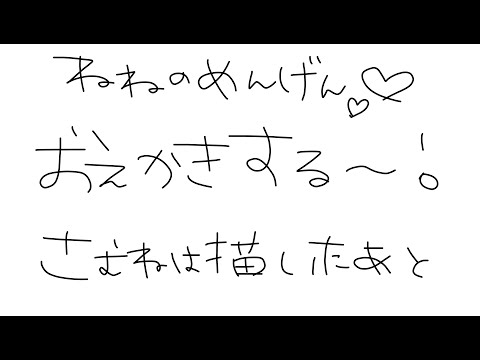 ねねのめんげん♡♡
おえかきする〜！
さむねは描いたあと